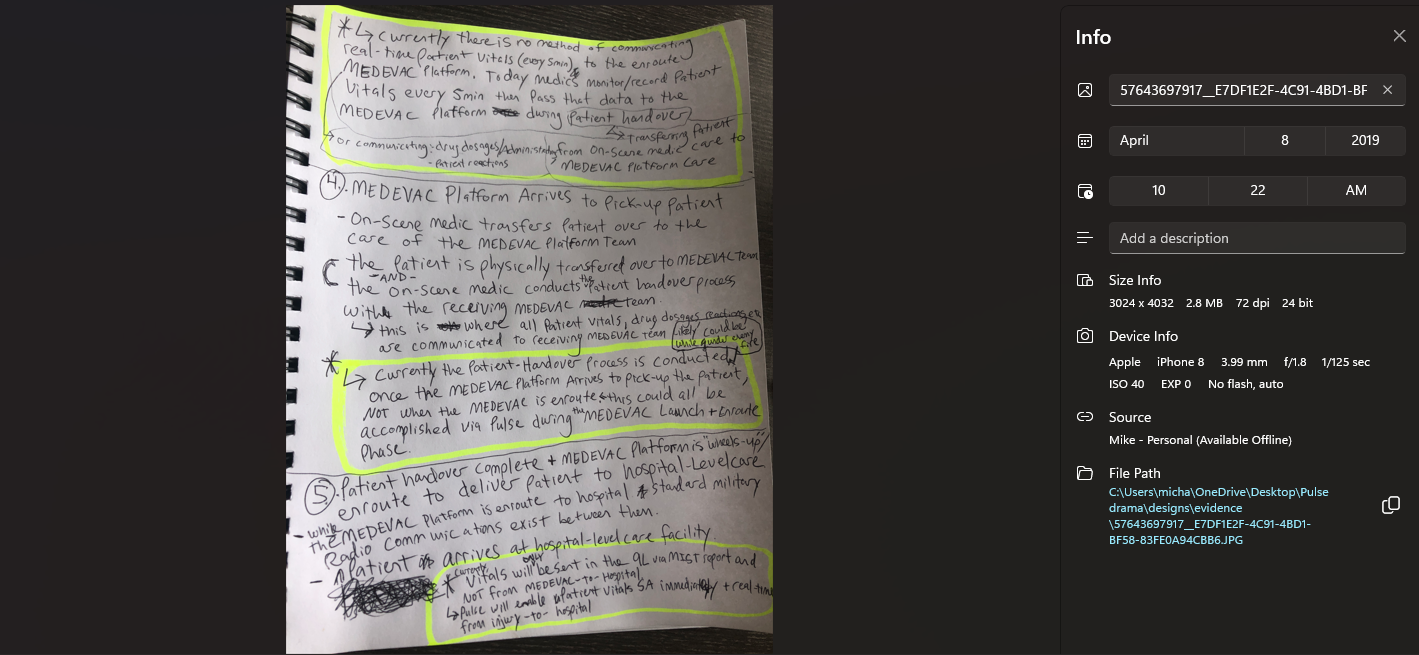 * ↳ Currently there is no method of communicating
real-time patient vitals (every 5min) to the enroute
MEDEVAC Platform. Today medics monitor/record Patient
Vitals every 5min then Pass that data to the
MEDEVAC Platform during Patient handover
↳ Transferring Patient
from On-Scene medic care to
MEDEVAC Platform Care
↳ or communicating: drug dosages/Administration
- Patient reactions
4. MEDEVAC Platform Arrives to Pick-up Patient
- On-Scene medic transfers Patient over to the
care of the MEDEVAC Platform Team
the Patient is physically transferred over to MEDEVAC Team
- AND -
the On-Scene medic conducts the Patient handover process
with the receiving MEDEVAC team.
↳ this is where all Patient vitals, drug dosages, reactions
are communicated to receiving MEDEVAC team
likely could be
while under enemy
fire
* ↳ Currently the Patient-Handover Process is conducted
once the MEDEVAC Platform Arrives to pick-up the Patient,
NOT when the MEDEVAC is enroute ← this could all be
accomplished via Pulse during the MEDEVAC Launch + Enroute
Phase.
5. Patient handover complete + MEDEVAC Platform is "wheels-up"
enroute to deliver Patient to hospital-Level care
- while the MEDEVAC Platform is enroute to hospital standard military
Radio Communications exist between them.
- Patient arrives at hospital-level care facility
* Currently Vitals will only be sent in the 9L via MIST report and
NOT from MEDEVAC-to-Hospital
↳ Pulse will enable Patient Vitals SA immediately + real time
from injury-to-hospital
Info
57643697917__E7DF1E2F-4C91-4BD1-BF
April 8 2019
10 22 AM
Add a description
Size Info
3024 x 4032 2.8 MB 72 dpi 24 bit
Device Info
Apple iPhone 8 3.99 mm f/1.8 1/125 sec
ISO 40 EXP 0 No flash, auto
Source
Mike - Personal (Available Offline)
File Path
C:\Users\micha\OneDrive\Desktop\Pulse
drama\designs\evidence
\57643697917__E7DF1E2F-4C91-4BD1-
BF58-83FE0A94CBB6.JPG